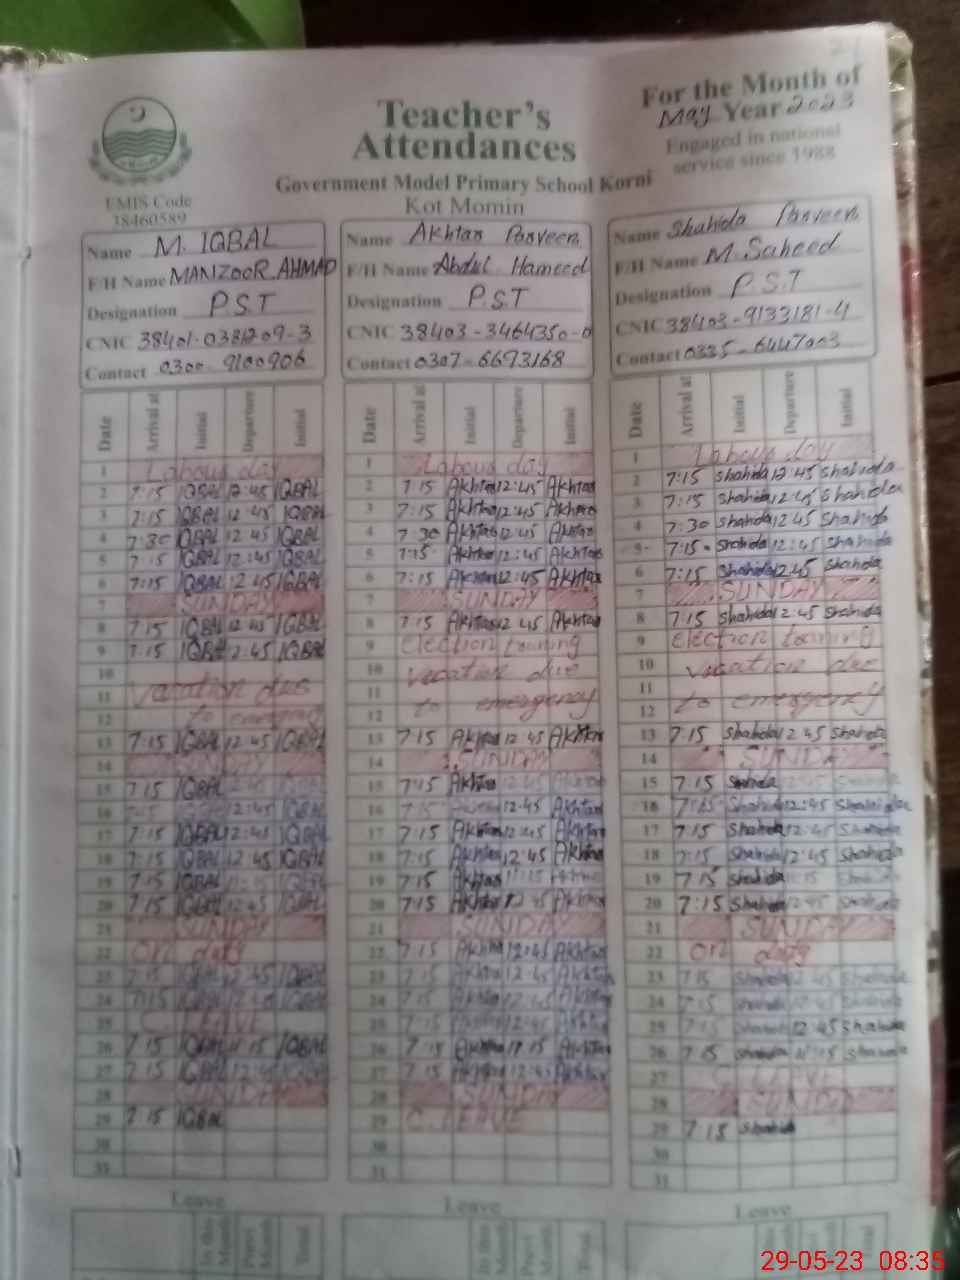 For the Month of
May Year 2023
Teacher's
Attendances
Engaged in national
service since 1988
Government Model Primary School Korni
Kot Momin
EMIS Code
38460589
Name M. IQBAL
F/H Name MANZOOR AHMAD
Designation P.S.T
CNIC 38401-0381209-3
Contact 0300-9100906
Date Arrival at Initial Departure Initial
1 Labour day
2 7:15 IQBAL 12:45 IQBAL
3 7:15 IQBAL 12:45 IQBAL
4 7:30 IQBAL 12:45 IQBAL
5 7:15 IQBAL 12:45 IQBAL
6 7:15 IQBAL 12:45 IQBAL
7 SUNDAY
8 7:15 IQBAL 12:45 IQBAL
9 7:15 IQBAL 12:45 IQBAL
10
11 vacation due
12 to emergency
13 7:15 IQBAL 12:45 IQBAL
14 SUNDAY
15 7:15 IQBAL
16 12:45 IQBAL
17 7:15 IQBAL 12:45 IQBAL
18 7:15 IQBAL 12:45 IQBAL
19 7:15 IQBAL IQBAL
20 7:15 IQBAL 12:45 IQBAL
21 SUNDAY
22 on duty
23 7:15 IQBAL 12:45 IQBAL
24 7:15 IQBAL 12:45 IQBAL
25 C. LEAVE
26 7:15 IQBAL 11:15 IQBAL
27 7:15 IQBAL 12:45 IQBAL
28 SUNDAY
29 7:15 IQBAL
30
31
Leave
Total
Name Akhtar Parveen
F/H Name Abdul Hameed
Designation P.S.T
CNIC 38403-3464350-0
Contact 0307-6693168
Date Arrival at Initial Departure Initial
1 Labour day
2 7:15 Akhtar 12:45 Akhtar
3 7:15 Akhtar 12:45 Akhtar
4 7:30 Akhtar 12:45 Akhtar
5 7:15 Akhtar 12:45 Akhtar
6 7:15 Akhtar 12:45 Akhtar
7 SUNDAY
8 7:15 Akhtar 12:45 Akhtar
9 election training
10 vacation due
11 to emergency
12
13 7:15 Akhtar 12:45 Akhtar
14 SUNDAY
15 7:15 Akhtar 12:45
16 7:15 12:45 Akhtar
17 7:15 Akhtar 12:45 Akhtar
18 7:15 Akhtar 12:45 Akhtar
19 7:15 Akhtar 11:15
20 7:15 Akhtar 12:45 Akhtar
21 SUNDAY
22 7:15 Akhtar 12:45 Akhtar
23 7:15 Akhtar 12:45 Akhtar
24 7:15 Akhtar 12:45 Akhtar
25 7:15 12:45 Akhtar
26 7:15 Akhtar 11:15 Akhtar
27 7:15 Akhtar 12:45 Akhtar
28 SUNDAY
29 C. LEAVE
30
31
Leave
Total
Name Shahida Parveen
F/H Name M. Saheed
Designation P.S.T
CNIC 38403-9133181-4
Contact 0335-6447003
Date Arrival at Initial Departure Initial
1 Labour day
2 7:15 Shahida 12:45 Shahida
3 7:15 Shahida 12:45 Shahida
4 7:30 Shahida 12:45 Shahida
5 7:15 Shahida 12:45 Shahida
6 7:15 Shahida 12:45 Shahida
7 SUNDAY
8 7:15 Shahida 12:45 Shahida
9 election training
10 vacation due
11 to emergency
12
13 7:15 Shahida 12:45 Shahida
14 SUNDAY
15 7:15 Shahida 12:45
16 7:15 Shahida 12:45 Shahida
17 7:15 Shahida 12:45 Shahida
18 7:15 Shahida 12:45 Shahida
19 7:15 Shahida 11:15
20 7:15 Shahida 12:45 Shahida
21 SUNDAY
22 on duty
23 7:15 Shahida 12:45 Shahida
24 7:15 Shahida 12:45 Shahida
25 7:15 Shahida 12:45 Shahida
26 7:15 Shahida 11:15 Shahida
27 LEAVE
28 SUNDAY
29 7:15 Shahida
30
31
Leave
Total
29-05-23 08:35